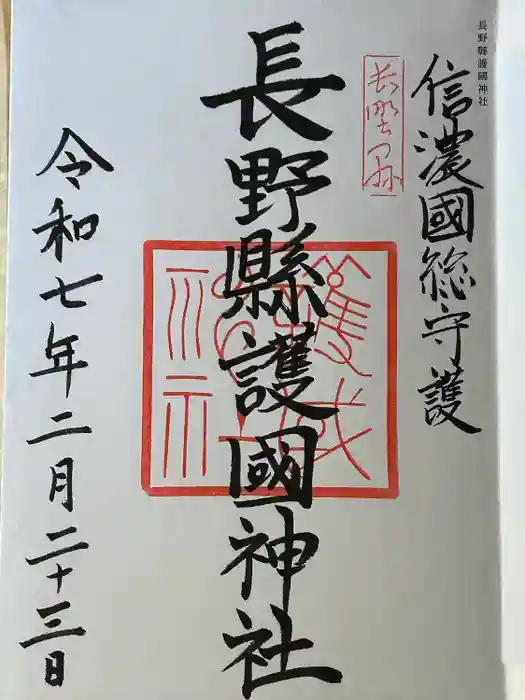 長野縣護國神社
信濃國総守護
長野縣護國神社
令和七年二月二十三日